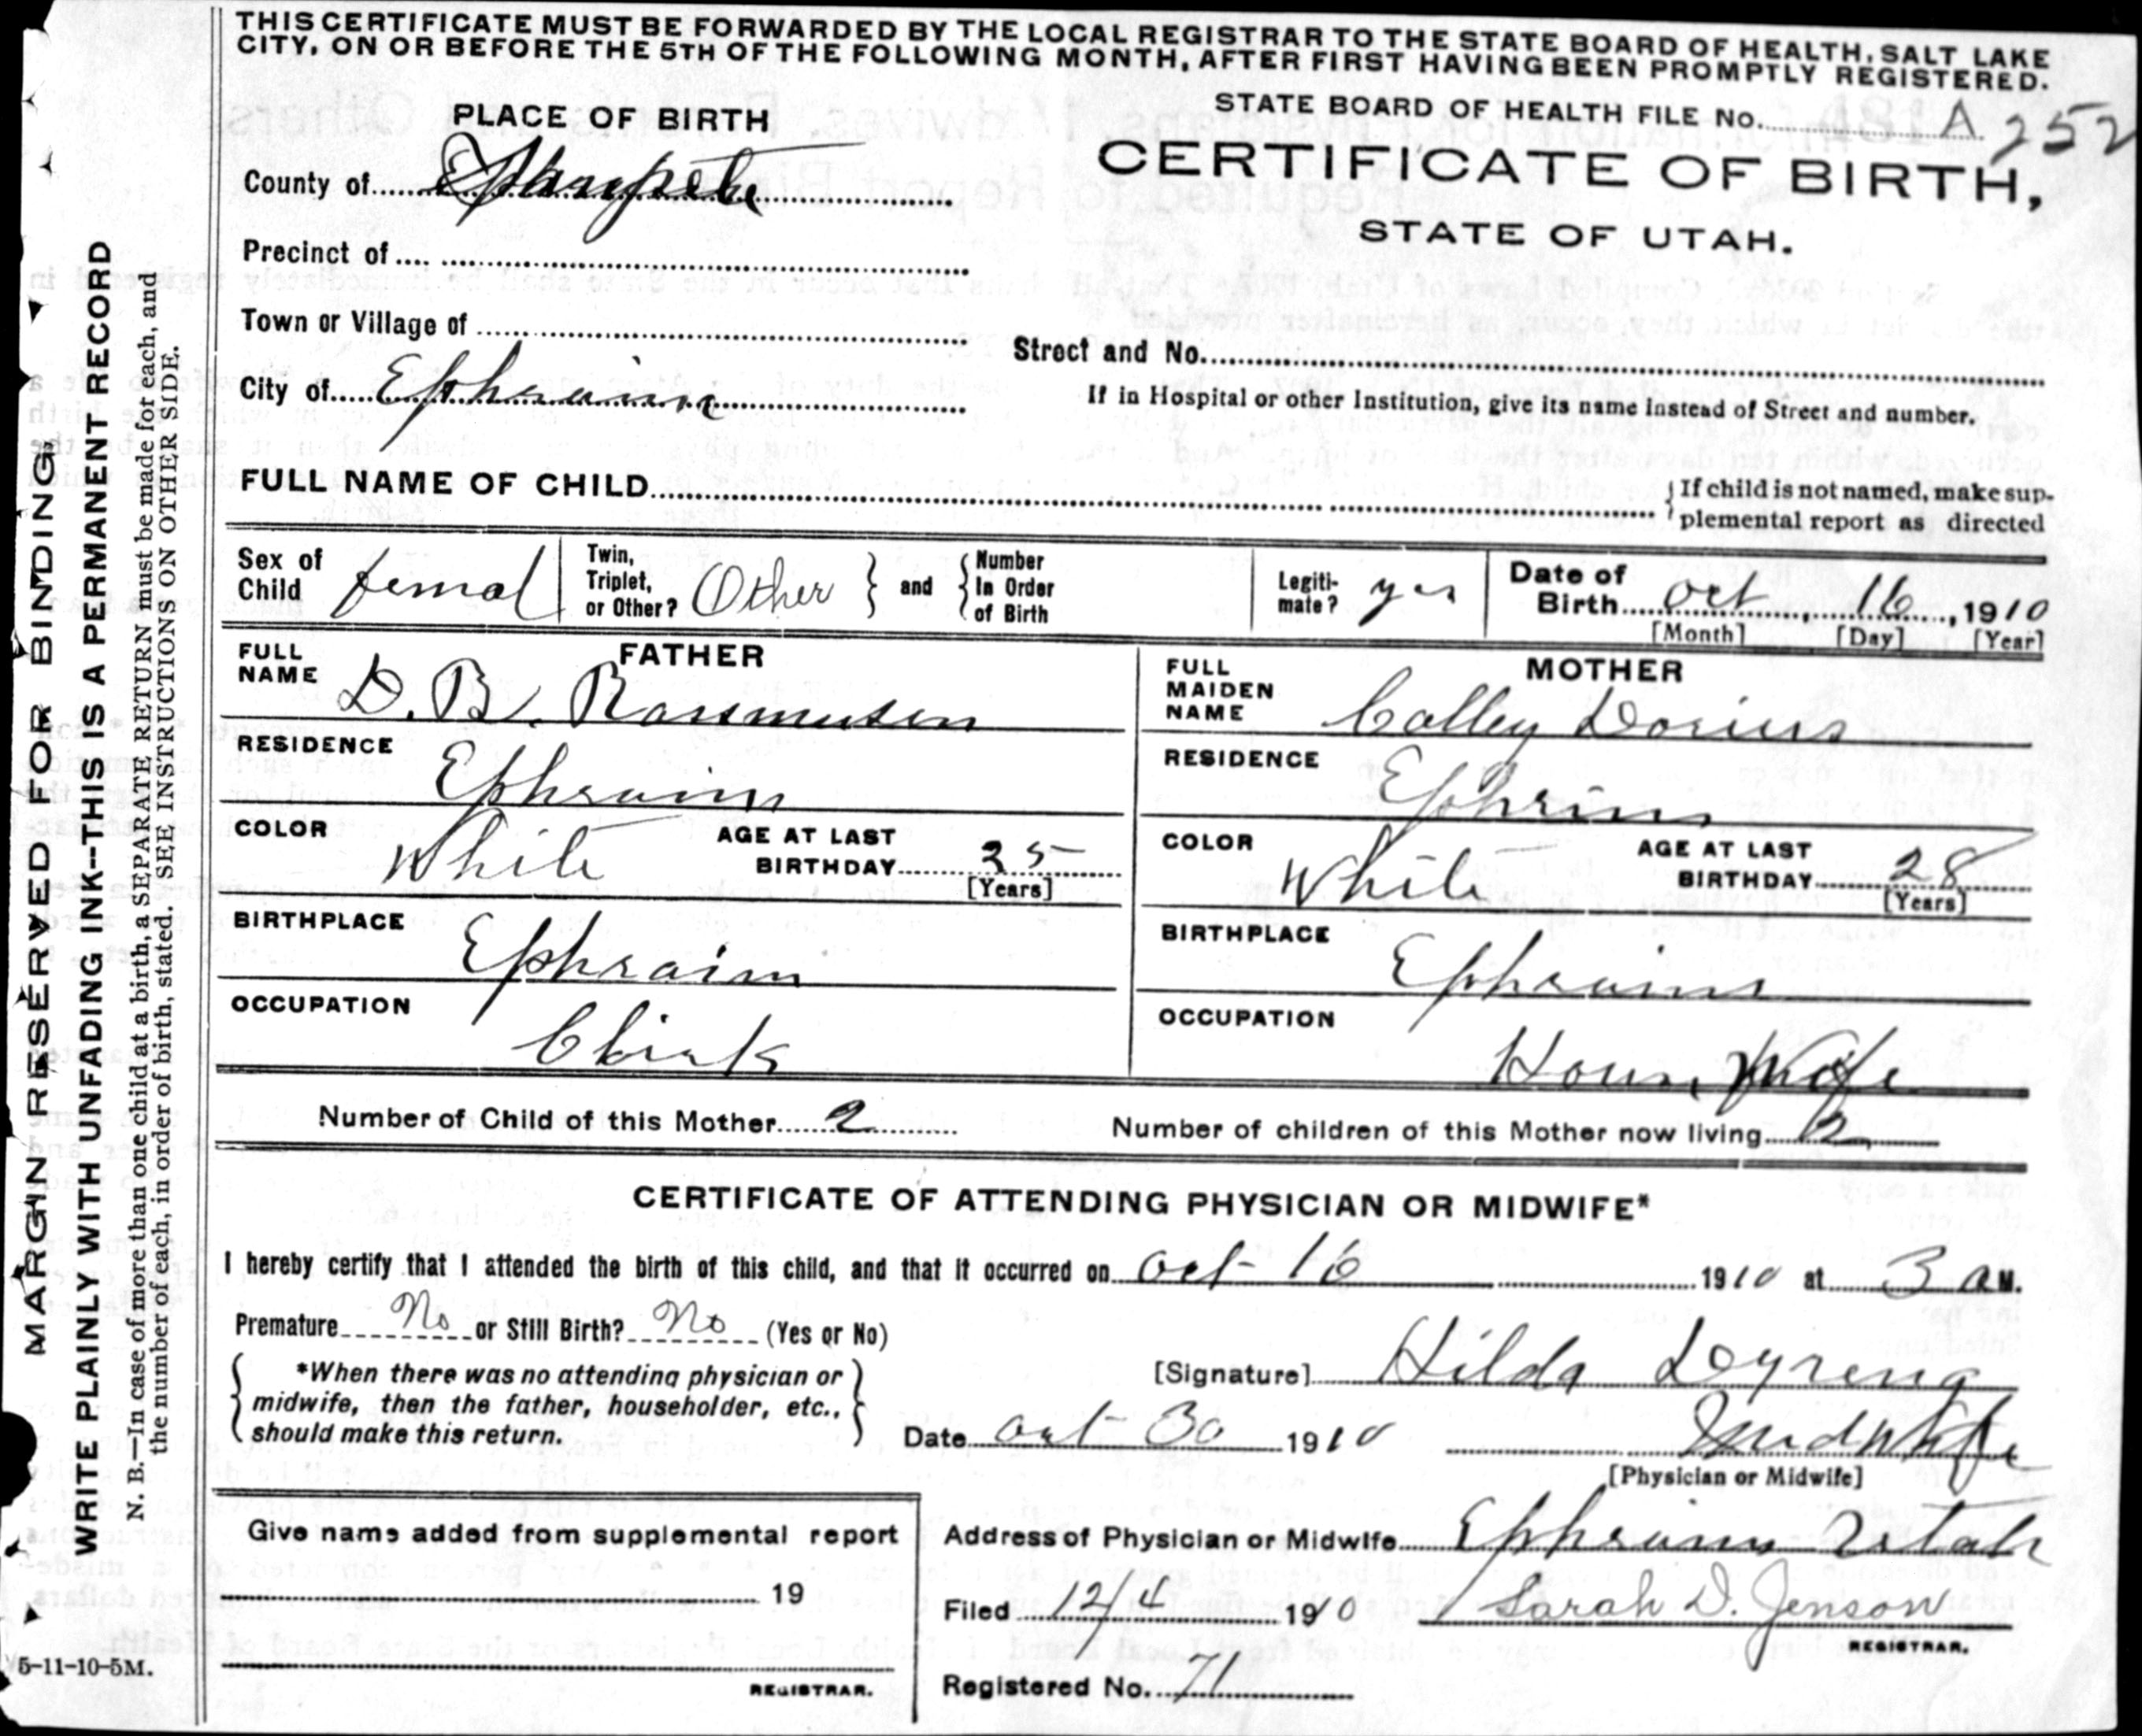 THIS CERTIFICATE MUST BE FORWARDED BY THE LOCAL REGISTRAR TO THE STATE BOARD OF HEALTH, SALT LAKE
CITY, ON OR BEFORE THE 5TH OF THE FOLLOWING MONTH, AFTER FIRST HAVING BEEN PROMPTLY REGISTERED.
STATE BOARD OF HEALTH FILE No. A 252
PLACE OF BIRTH
CERTIFICATE OF BIRTH,
STATE OF UTAH.
County of Sanpete
Precinct of
Town or Village of
Street and No.
City of Ephraim
If in Hospital or other Institution, give its name instead of Street and number.
FULL NAME OF CHILD
If child is not named, make sup-
plemental report as directed
Sex of Child femal
Twin, Triplet, or Other? Other and Number In Order of Birth
Legiti-mate? yes
Date of Birth Oct 16, 1910
[Month] [Day] [Year]
FATHER
FULL NAME D. B. Rasmusen
RESIDENCE Ephraim
COLOR White AGE AT LAST BIRTHDAY 35
[Years]
BIRTHPLACE Ephraim
OCCUPATION Clirk
MOTHER
FULL MAIDEN NAME Colley Dorius
RESIDENCE Ephrim
COLOR White AGE AT LAST BIRTHDAY 28
[Years]
BIRTHPLACE Ephraim
OCCUPATION Hous Wife
Number of Child of this Mother 2
Number of children of this Mother now living 2
CERTIFICATE OF ATTENDING PHYSICIAN OR MIDWIFE*
I hereby certify that I attended the birth of this child, and that it occurred on Oct 16 1910 at 3 a M.
Premature No or Still Birth? No (Yes or No)
*When there was no attending physician or
midwife, then the father, householder, etc.,
should make this return.
[Signature] Hilda Dyreng
Date Oct 30 1910 Midwife
[Physician or Midwife]
Give name added from supplemental report
19
REGISTRAR.
Address of Physician or Midwife Ephraim Utah
Filed 12/4 1910 Sarah D. Jenson
REGISTRAR.
Registered No. 71
MARGIN RESERVED FOR BINDING
WRITE PLAINLY WITH UNFADING INK--THIS IS A PERMANENT RECORD
N. B.—In case of more than one child at a birth, a SEPARATE RETURN must be made for each, and
the number of each, in order of birth, stated. SEE INSTRUCTIONS ON OTHER SIDE.
5-11-10-5M.